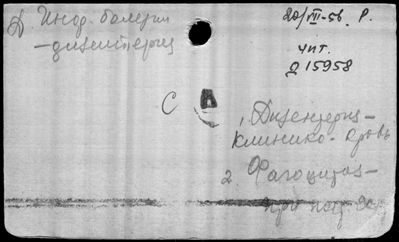 Д Инф. болезни
- дизентерия
28/VII-56 Р.
чит.
Д 15958
С
1. Дизентерия -
клинико - кровь
2. Фагоцитоз -
при